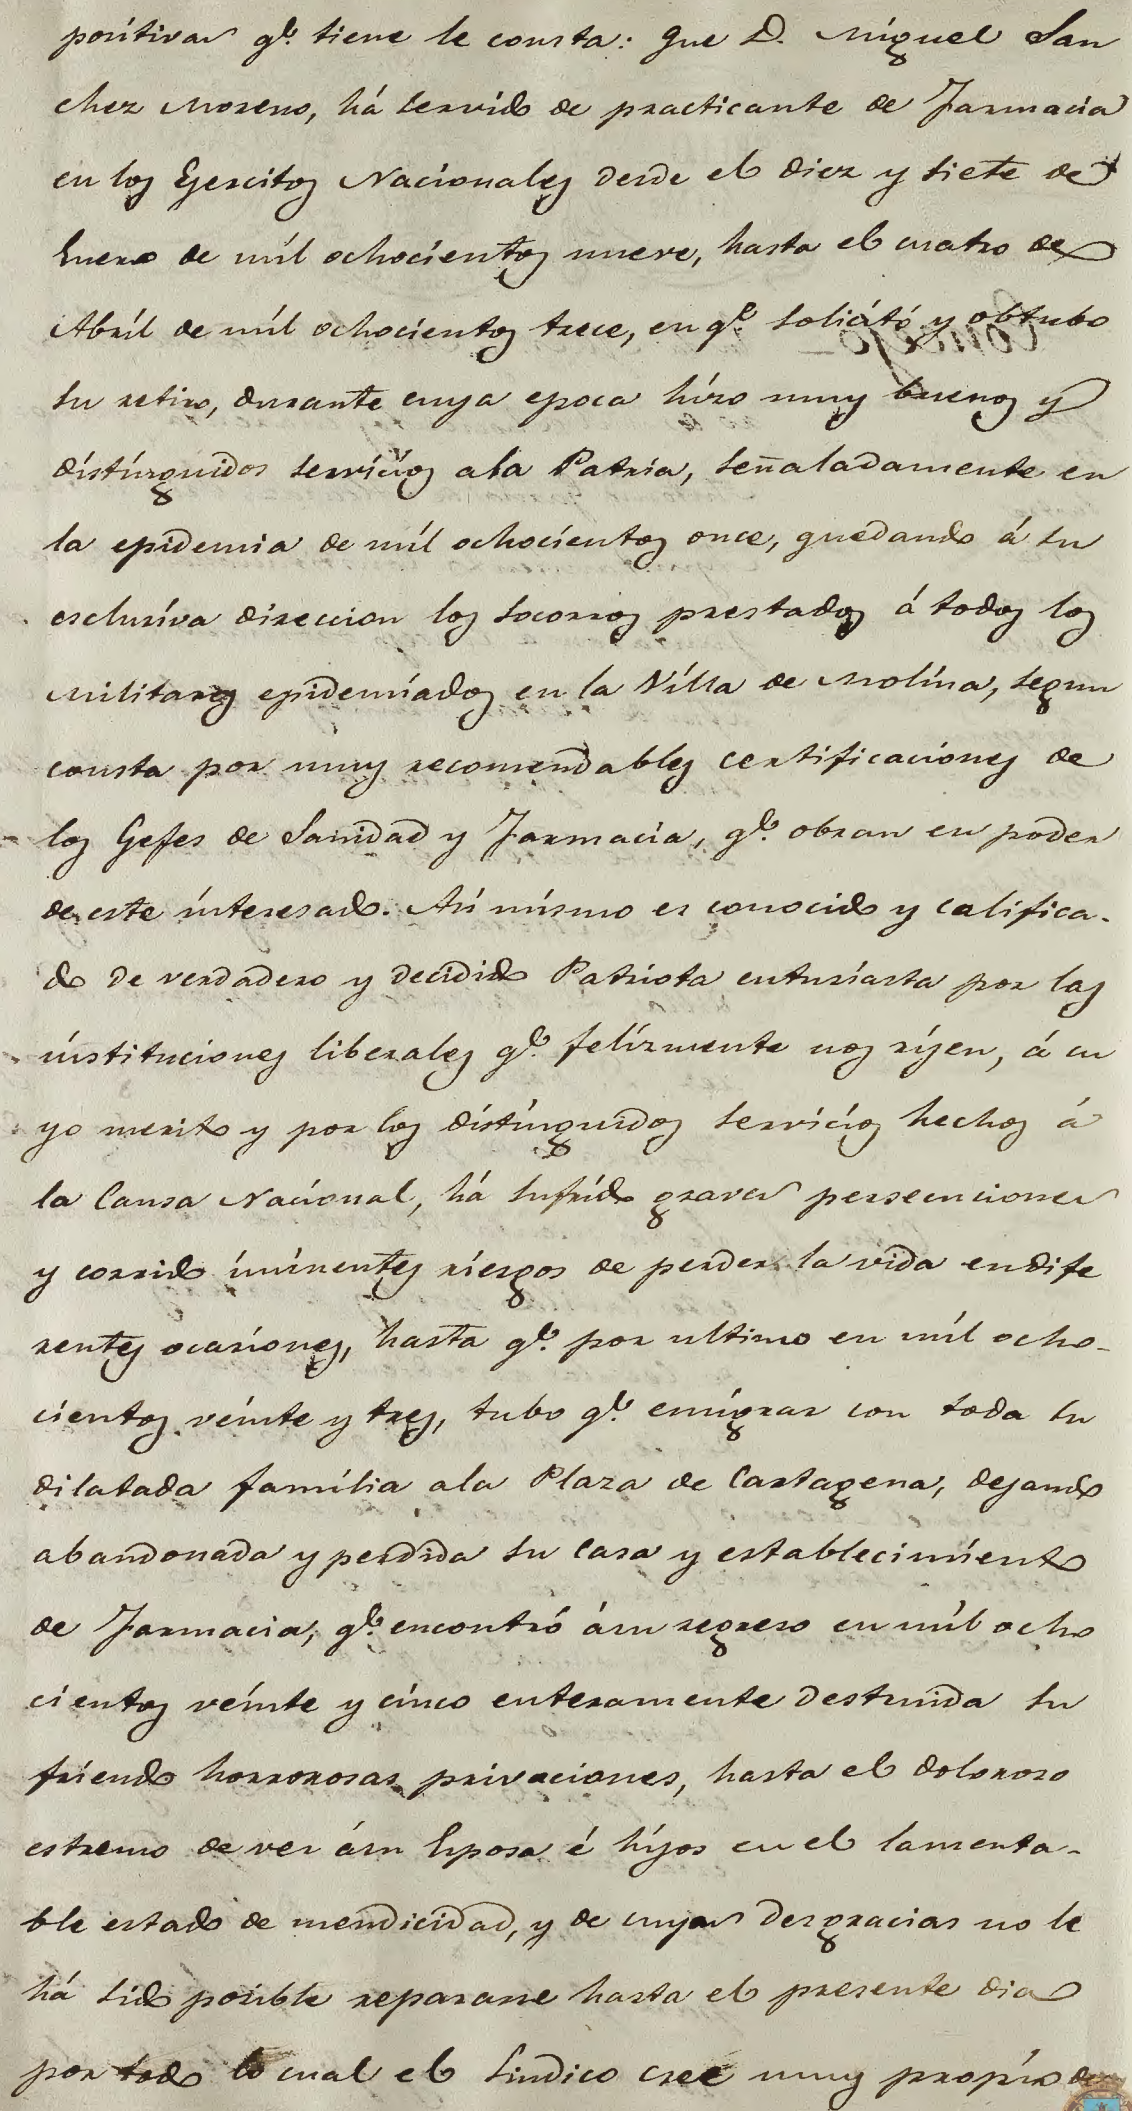 positivas q.e tiene le consta: Que D. Miguel San
chez Moreno, há servido de practicante de Farmacia
en los Ejercitos Nacionales desde el diez y siete de
Enero de mil ochocientos nueve, hasta el cuatro de
Abril de mil ochocientos trece, en q.e solicitó y obtubo
su retiro, durante cuya epoca hizo muy buenos y
distinguidos servicios ala Patria, señaladamente en
la epidemia de mil ochocientos once, quedando á su
esclusiva direccion los socorros prestados á todos los
Militares epidemiados en la Villa de Molina, segun
consta por muy recomendables certificaciones de
los Gefes de Sanidad y Farmacia, q.e obran en poder
de este interesado. Asi mismo es conocido y califica-
do de verdadero y decidido Patriota entusiasta por las
instituciones liberales q.e felizmente nos rijen, á cu
yo merito y por los distinguidos servicios hechos á
la Causa Nacional, há sufrido graves persecuciones
y corrido iminentes riesgos de perder la vida en dife
rentes ocasiones, hasta q.e por ultimo en mil ocho-
cientos veinte y tres, tubo q.e emigrar con toda su
dilatada familia ala Plaza de Cartagena, dejando
abandonada y perdida su casa y establecimiento
de Farmacia, q.e encontró ásu regreso en mil ocho
cientos veinte y cinco enteramente destruida su
friendo horrorosas privaciones, hasta el doloroso
estremo de ver ásu Esposa é hijos en el lamenta-
ble estado de mendicidad, y de cuyas desgracias no le
há sido posible repararse hasta el presente dia
por todo lo cual el Sindico cree muy propio de